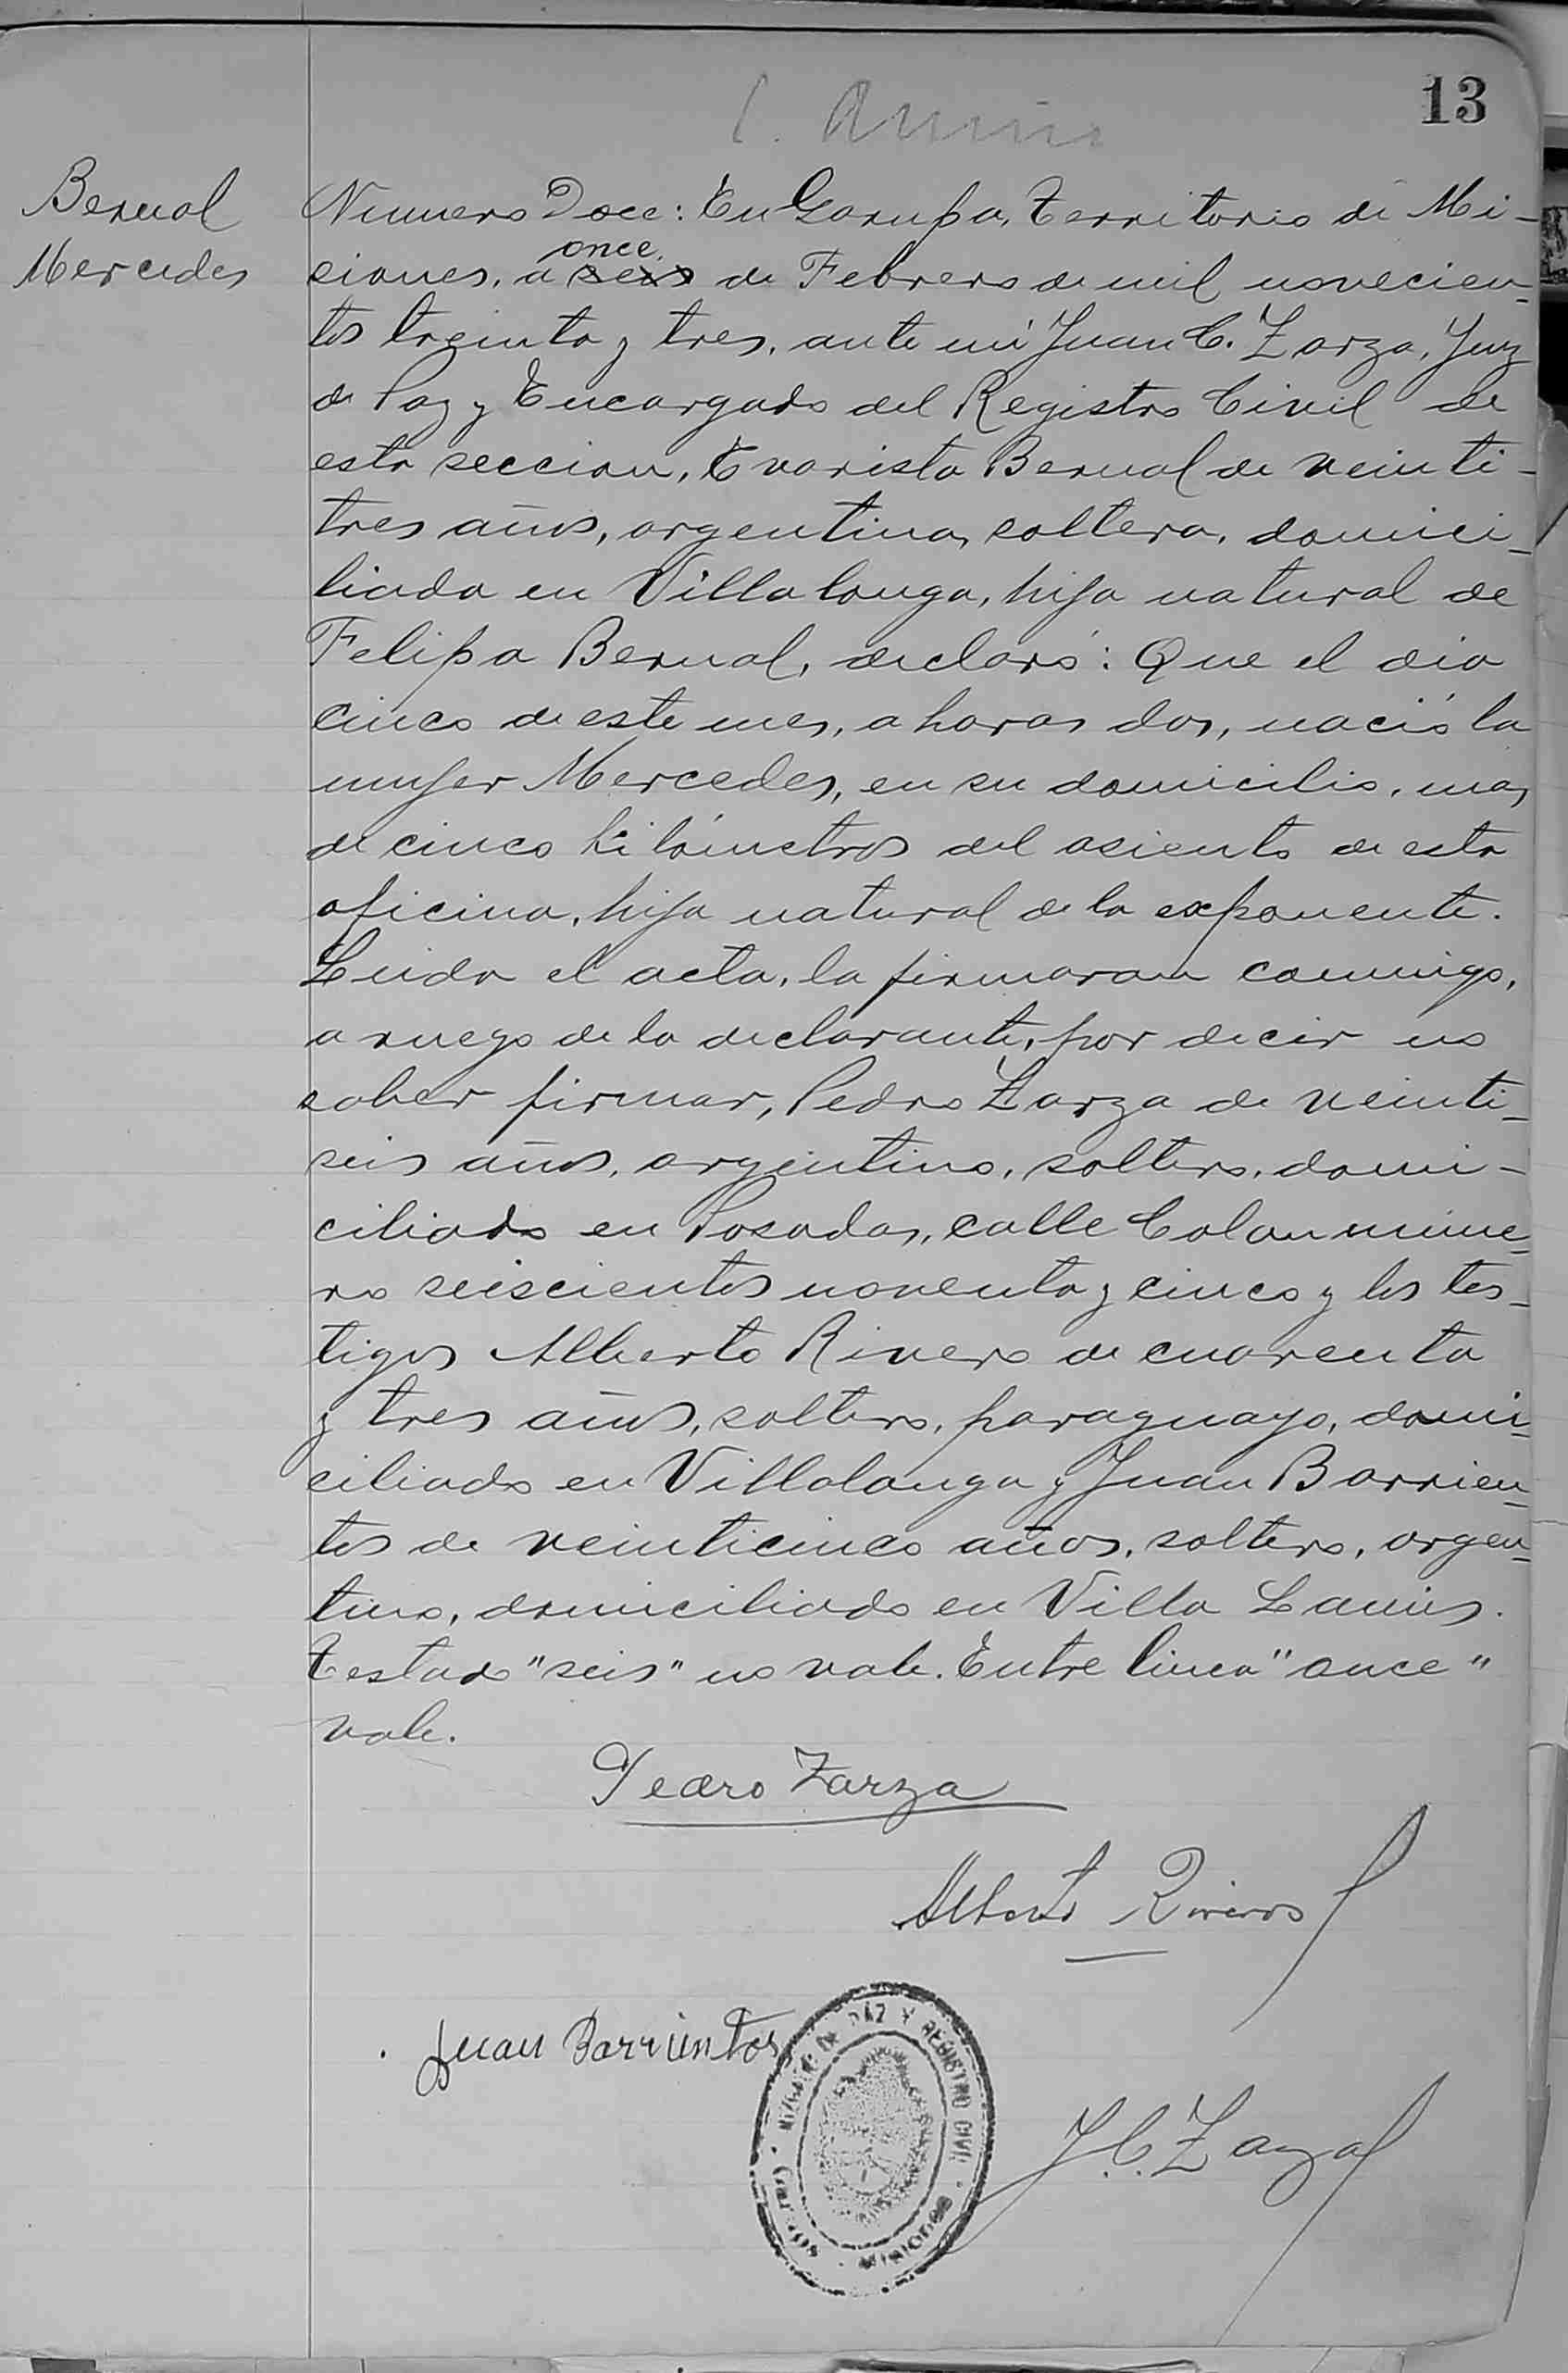 13
Bernal
Mercedes
Numero Doce: En Garupa, Territorio de Mi-
once
siones, a seis de Febrero de mil novecien-
tos treinta y tres, ante mi Juan C. Zarza, Juez
de Paz y Encargado del Registro Civil de
esta seccion, Evarista Bernal de veinti-
tres años, argentina, soltera, domici-
liada en Villalonga, hija natural de
Felipa Bernal, declaró: Que el dia
cinco de este mes, a horas dos, nació la
mujer Mercedes, en su domicilio, mas
de cinco kilómetros del asiento de esta
oficina, hija natural de la exponente.
Leida el acta, la firmaron conmigo,
a ruego de la declarante, por decir no
saber firmar, Pedro Zarza de veinti-
seis años, argentino, soltero, domi-
ciliado en Posadas, calle Colon nume-
ro seiscientos noventa y cinco y los tes-
tigos Alberto Rivero de cuarenta
y tres años, soltero, paraguayo, domi-
ciliado en Villalonga y Juan Barrien-
tos de veinticinco años, soltero, argen-
tino, domiciliado en Villa Lanús.
Testado "seis" no vale. Entre linea "once"
vale.
Pedro Zarza
Alberto Riveros
Juan Barrientos
JUZGADO DE PAZ Y REGISTRO CIVIL
GARUPA
MISIONES
J. C. Zarza